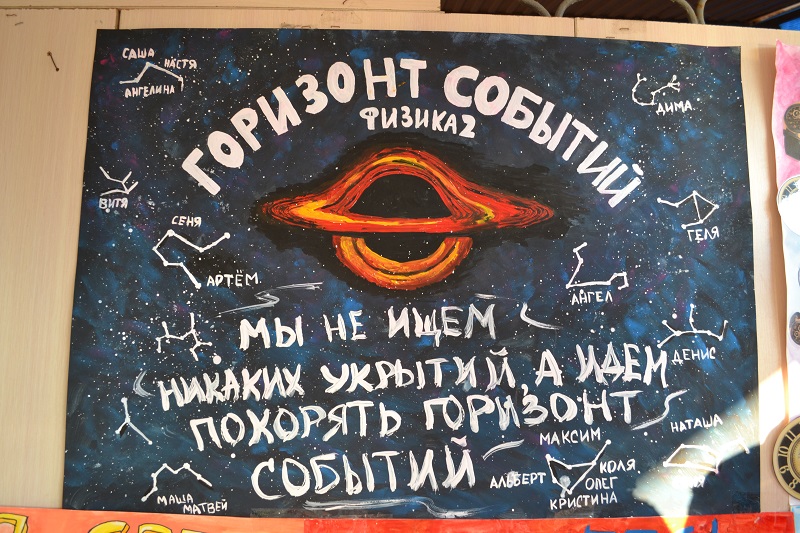 ГОРИЗОНТ СОБЫТИЙ
ФИЗИКА 2
САША
НАСТЯ
АНГЕЛИНА
ДИМА
ВИТЯ
СЕНЯ
АРТЁМ
ГЕЛЯ
АНГЕЛ
МЫ НЕ ИЩЕМ
НИКАКИХ УКРЫТИЙ, А ИДЕМ
ПОКОРЯТЬ ГОРИЗОНТ
СОБЫТИЙ
ДЕНИС
МАКСИМ
НАТАША
АЛЬБЕРТ
КОЛЯ
ОЛЕГ
КРИСТИНА
МАША
МАТВЕЙ